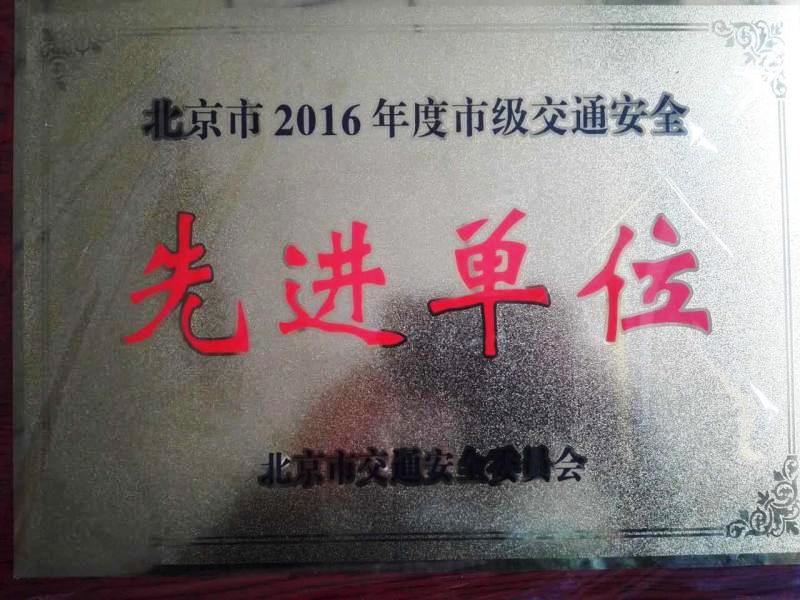 北京市 2016 年度市级交通安全
先进单位
北京市交通安全委员会